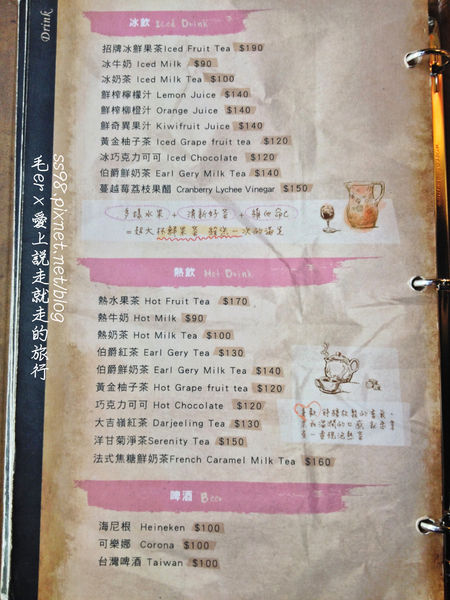 Drink
冰飲 Iced Drink
招牌冰鮮果茶Iced Fruit Tea $190
冰牛奶 Iced Milk $90
冰奶茶 Iced Milk Tea $100
鮮榨檸檬汁 Lemon Juice $140
鮮榨柳橙汁 Orange Juice $140
鮮奇異果汁 Kiwifruit Juice $140
黃金柚子茶 Iced Grape fruit tea $120
冰巧克力可可 Iced Chocolate $120
伯爵鮮奶茶 Earl Gery Milk Tea $140
蔓越莓荔枝果醋 Cranberry Lychee Vinegar $150
多樣水果 + 清新好茶 +
=超大杯鮮果茶 一次的滿足
熱飲 Hot Drink
熱水果茶 Hot Fruit Tea $170
熱牛奶 Hot Milk $90
熱奶茶 Hot Milk Tea $100
伯爵紅茶 Earl Gery Tea $130
伯爵鮮奶茶 Earl Gery Milk Tea $140
黃金柚子茶 Hot Grape fruit tea $120
巧克力可可 Hot Chocolate $120
大吉嶺紅茶 Darjeeling Tea $130
洋甘菊淨茶Serenity Tea $150
法式焦糖鮮奶茶French Caramel Milk Tea $160
啤酒 Beer
海尼根 Heineken $100
可樂娜 Corona $100
台灣啤酒 Taiwan $100
ss98.pixnet.net/blog
毛er×愛上說走就走的旅行